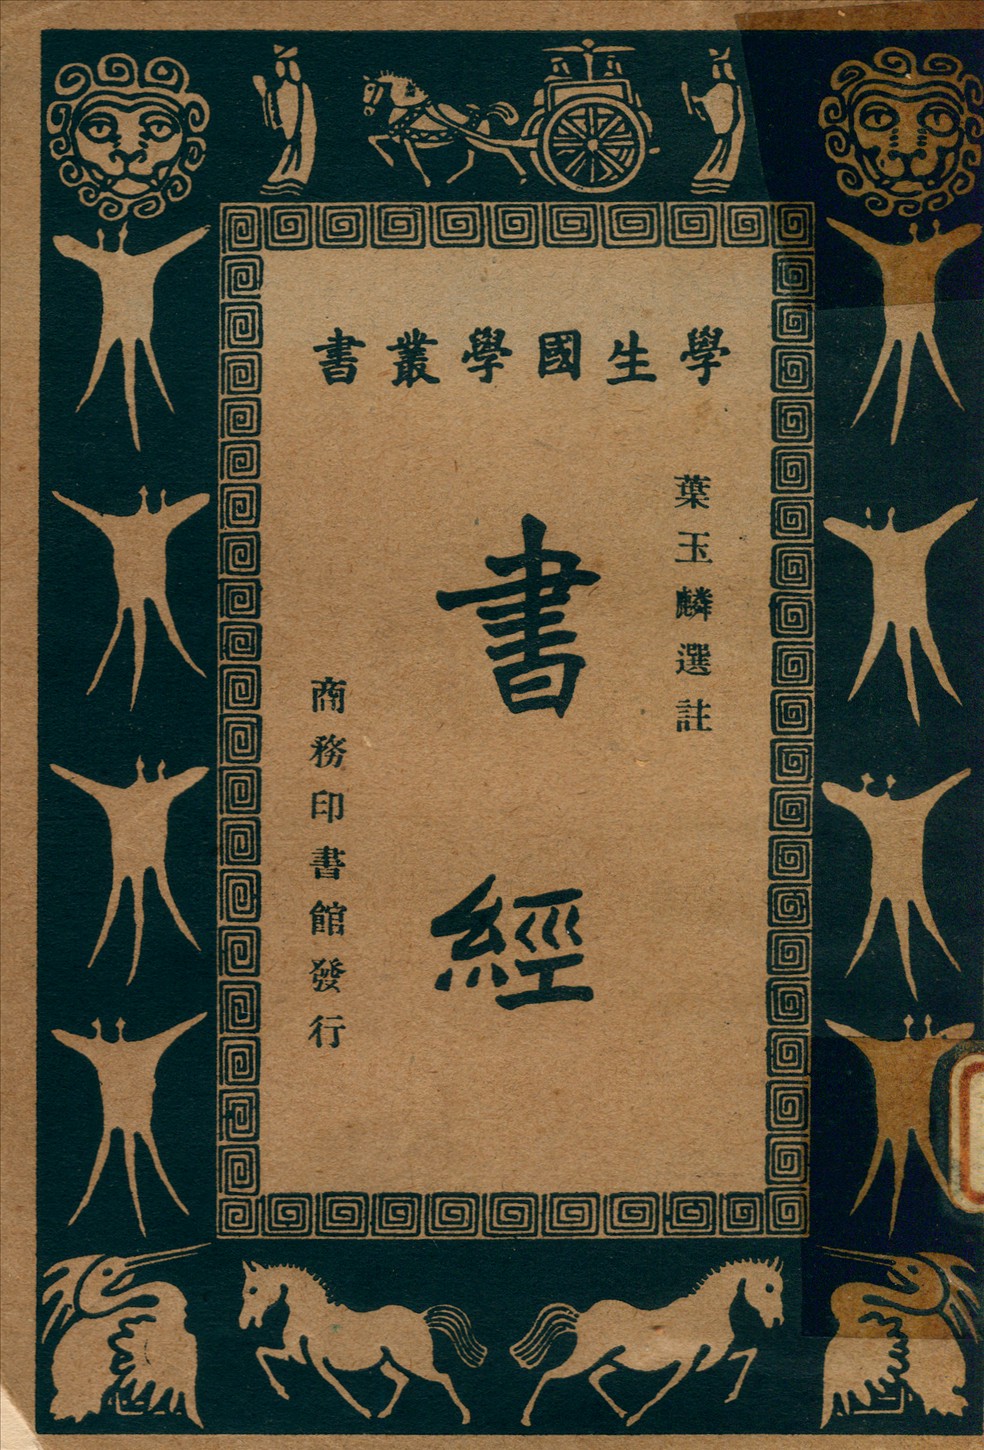 學生國學叢書
葉玉麟選註
書經
商務印書館發行